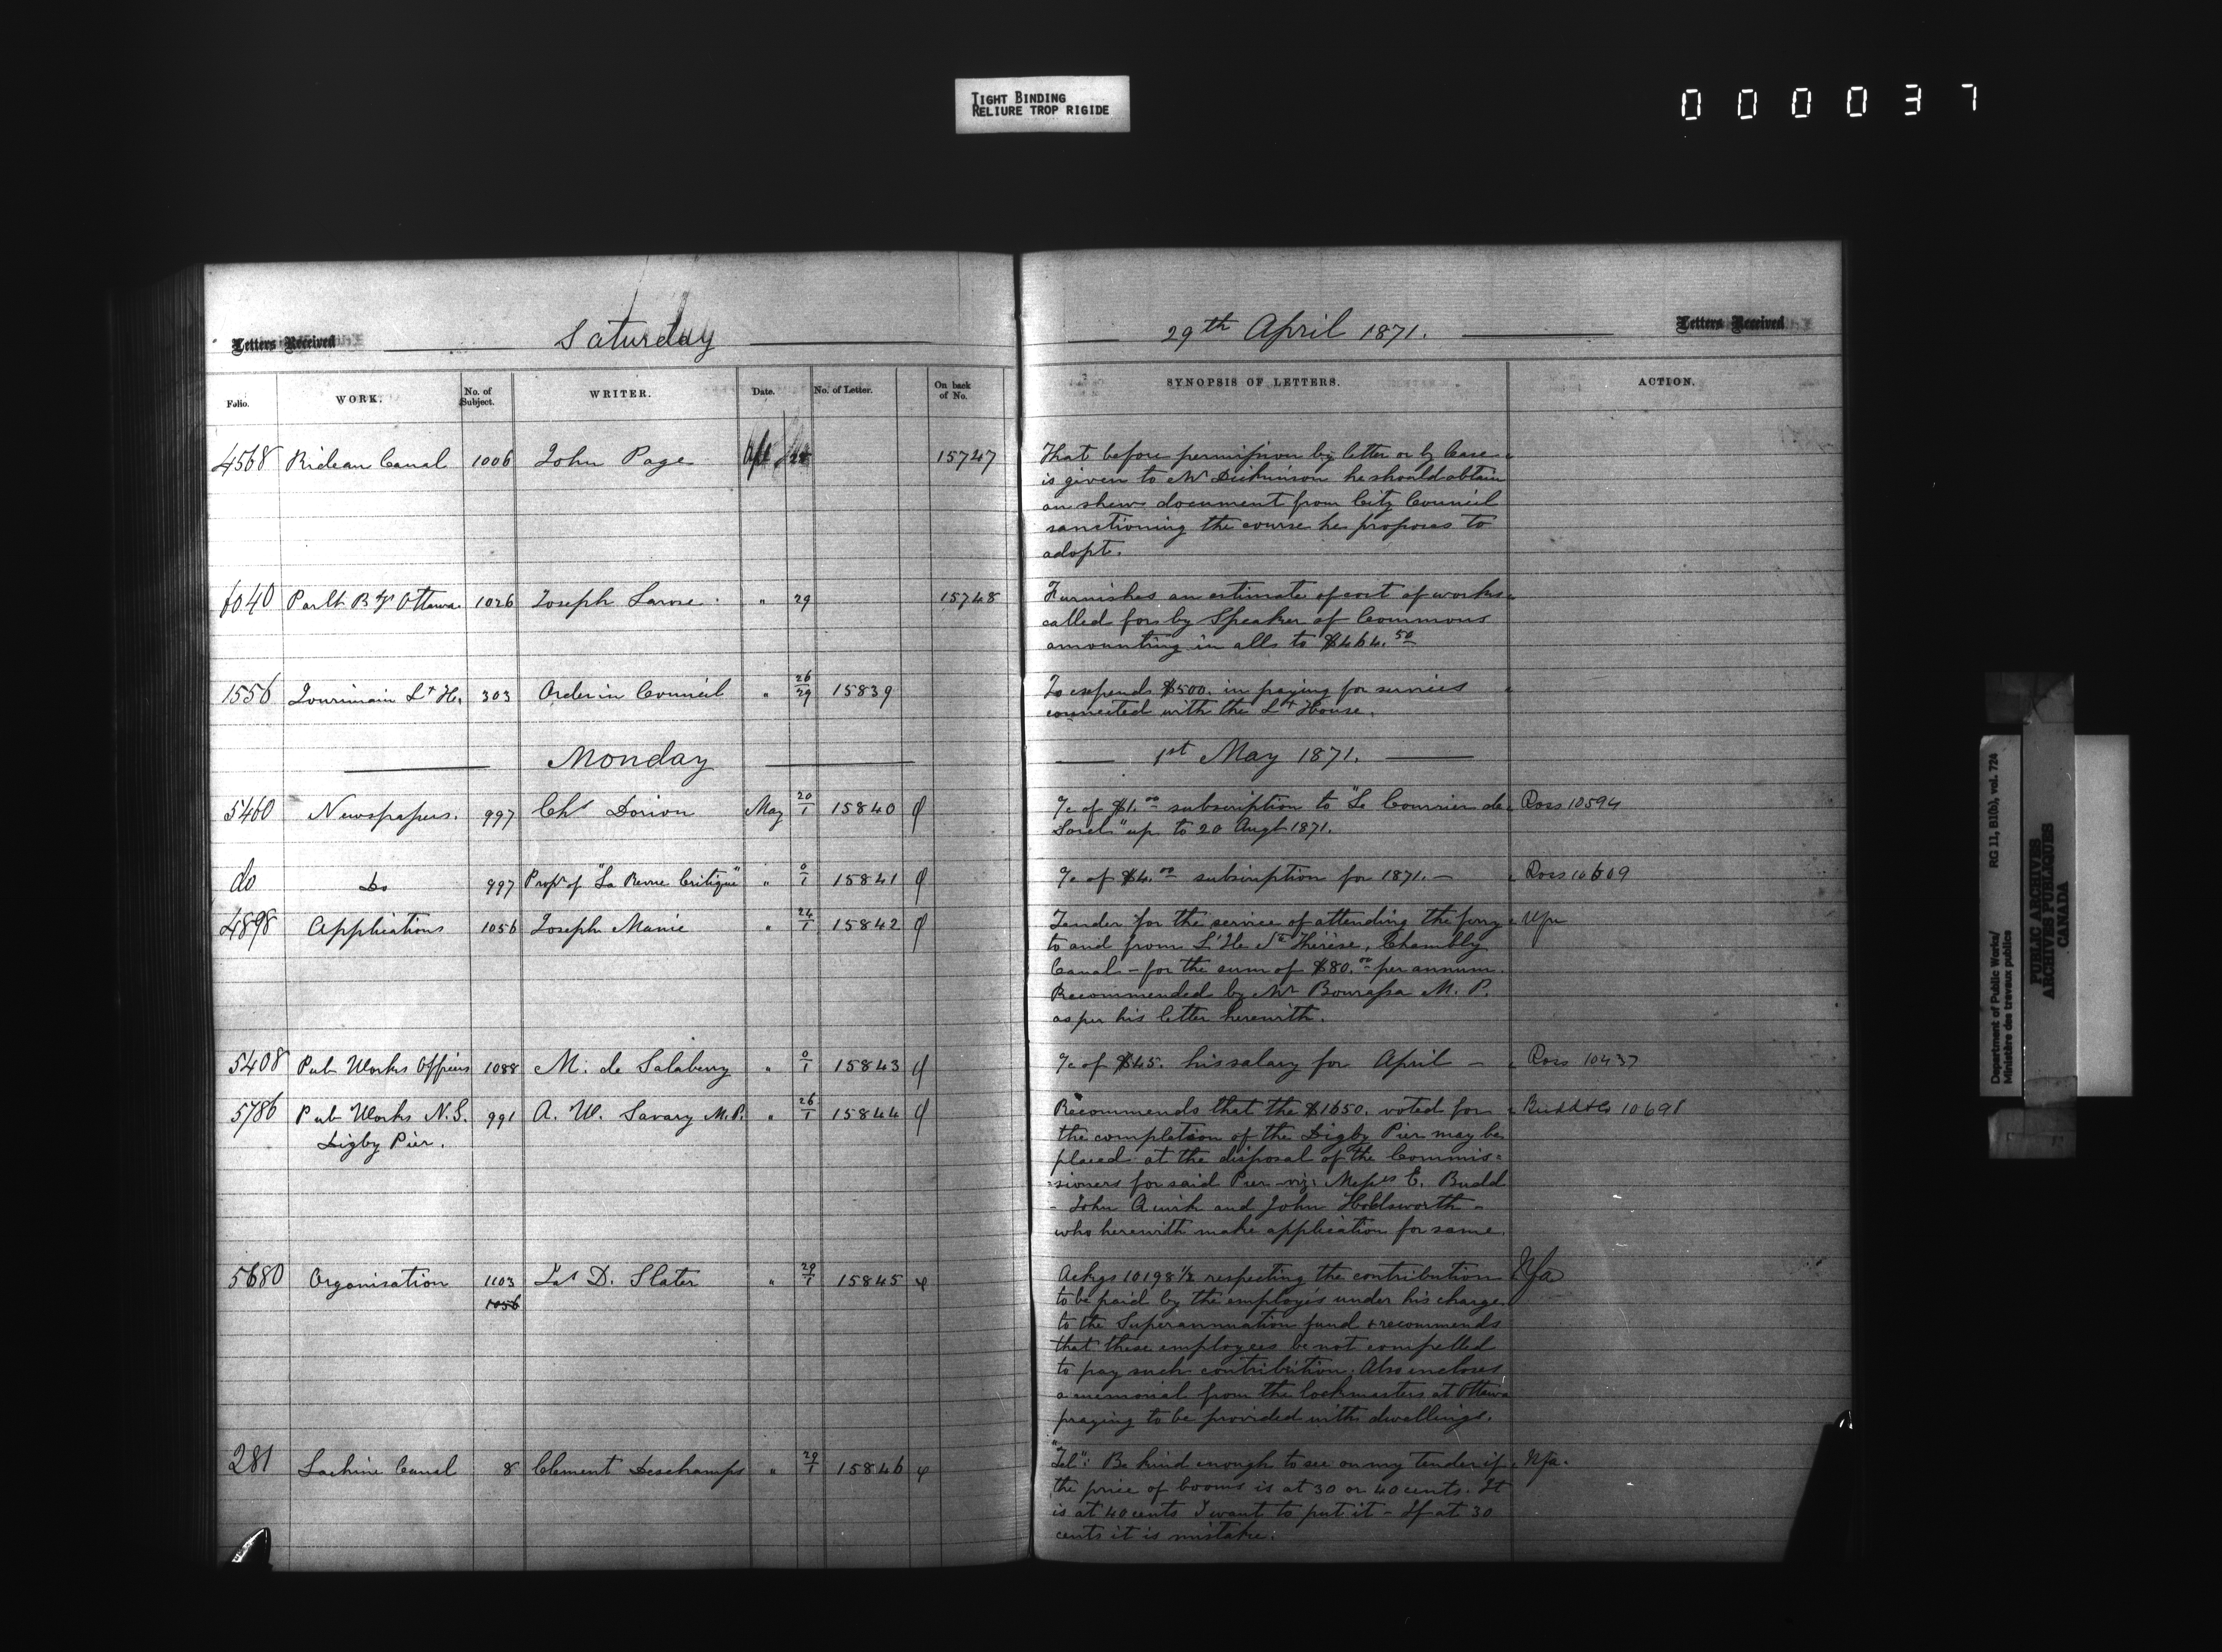 TIGHT BINDING
RELIURE TROP RIGIDE
000037
Letters Received
Saturday
29th April 1871.
Letters Received
Folio.
WORK.
No. of Subject.
WRITER.
Date.
No. of Letter.
On back of No.
SYNOPSIS OF LETTERS.
ACTION.
4568 Rideau Canal 1006 John Page Apl 15747
That before permission by letter or by Lease
is given to Mr Dickinson he should obtain
an shew document from City Council
sanctioning the course he proposes to
adopt.
6040 Parlt Bgs Ottawa 1026 Joseph Larose " 29 15748
Furnishes an estimate of cost of works
called for by Speaker of Commons
amounting in all to $464.50
1556 Jourimain Lt H. 303 Order in Council " 26/29 15839
To expend $500. in paying for services
connected with the Lt House.
Monday
1st May 1871.
5460 Newspapers. 997 Chs Dorion May 20/1 15840
a/c of $1.00 subscription to "Le Courrier de Ross 10594
Sorel" up to 20 Augt 1871.
do Do 997 Propr of "La Revue Critique" " 0/1 15841
a/c of $4.00 subscription for 1871. — Ross 10609
4898 Applications 1056 Joseph " 24/1 15842
Tender for the service of attending the ferry Nfa
to and from L'Ile Ste Thérèse, Chambly
Canal – for the sum of $80.00 per annum.
Recommended by Mr Bourassa M. P.
as per his letter herewith.
5408 Pub Works Officers 1088 M. de Salaberry " 0/1 15843
a/c of $45. his salary for April — Ross 10437
5786 Pub Works N.S. 991 A. W. Savary M.P. " 26/1 15844
Digby Pier.
Recommends that the $1650. voted for Budd & Co 10698
the completion of the Digby Pier may be
placed at the disposal of the Commis=
=sioners for said Pier viz: Messrs E. Budd
- John Quirk and John Holdsworth -
who herewith make application for same.
5680 Organisation 1103 Jas D. Slater " 29/1 15845
1056
Ackgs 10198½ respecting the contribution Nfa
to be paid by the employés under his charge
to the Superannuation fund & recommends
that these employees be not compelled
to pay such contribution. Also incloses
a memorial from the lockmasters at Ottawa
praying to be provided with dwellings.
281 Lachine Canal 8 Clement Deschamps " 29/1 15846
"Tel": Be kind enough to see on my tender if Nfa.
the price of booms is at 30 or 40 cents. It
is at 40 cents I want to put it – If at 30
cents it is mistake.
Department of Public Works/
Ministère des travaux publics
RG 11, B1(b), vol. 724
PUBLIC ARCHIVES
ARCHIVES PUBLIQUES
CANADA